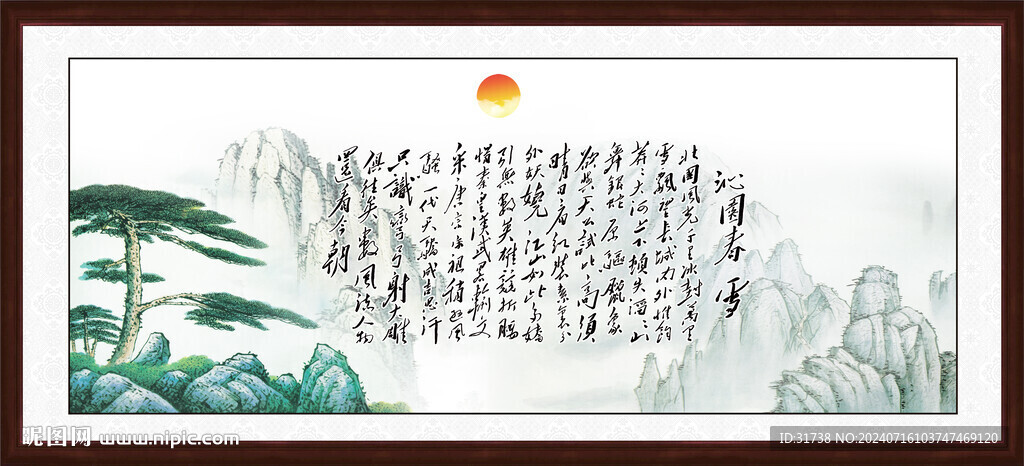 沁園春 雪
北國風光千里冰封萬里
雪飄望長城內外惟餘
莽〻大河上下頓失滔〻山
舞銀蛇原驅臘象
欲與天公試比高須
晴日看紅裝素裹分
外妖嬈江山如此多嬌
引無數英雄競折腰
惜秦皇漢武畧輸文
采唐宗宋祖稍遜風
騷一代天驕成吉思汗
只識彎弓射大雕
俱往矣數風流人物
還看今朝
昵图网 www.nipic.com
ID:31738 NO:20240716103747469120